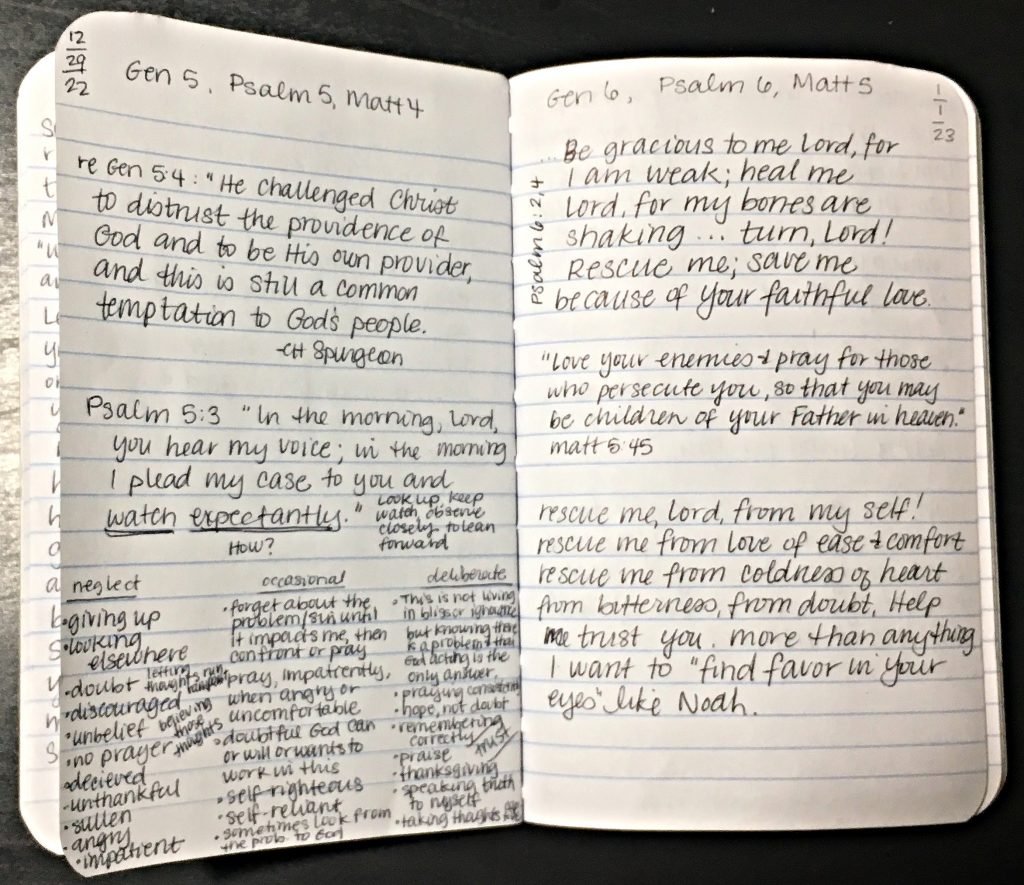 12
29
22
Gen 5, Psalm 5, Matt 4
re Gen 5:4: "He challenged Christ
to distrust the providence of
God and to be His own provider,
and this is still a common
temptation to God's people.
-CH Spurgeon
Psalm 5:3 "In the morning, Lord,
you hear my voice; in the morning
I plead my case to you and
watch expectantly."
Look up, keep
watch, observe
closely to lean
forward
How?
neglect
• giving up
• looking
elsewhere
• doubt letting thoughts run
• discouraged
• unbelief believing those thoughts
• no prayer
• decieved
• unthankful
• sullen
• angry
• impatient
occasional
• forget about the
problem/sin until
it impacts me, then
confront or pray
• pray, impatiently,
when angry or
uncomfortable
• doubtful God can
or will or wants to
work in this
• self-righteous
• self-reliant
• sometimes look from
the prob. to God
deliberate
• This is not living
in bliss or ignorance
but knowing there
is a problem & that
God acting is the
only answer.
• praying
• hope, not doubt
• remembering
correctly
trust
• praise
• thanksgiving
• speaking truth
to myself
• taking thoughts
1
1
23
Gen 6, Psalm 6, Matt 5
Psalm 6:2,4
...Be gracious to me Lord, for
I am weak; heal me
Lord, for my bones are
shaking ... turn, Lord!
Rescue me; save me
because of your faithful love.
"Love your enemies & pray for those
who persecute you, so that you may
be children of your Father in heaven."
matt 5:45
rescue me, Lord, from my self!
rescue me from love of ease & comfort
rescue me from coldness of heart
from bitterness, from doubt, Help
me trust you. more than anything
I want to "find favor in your
eyes" like Noah.